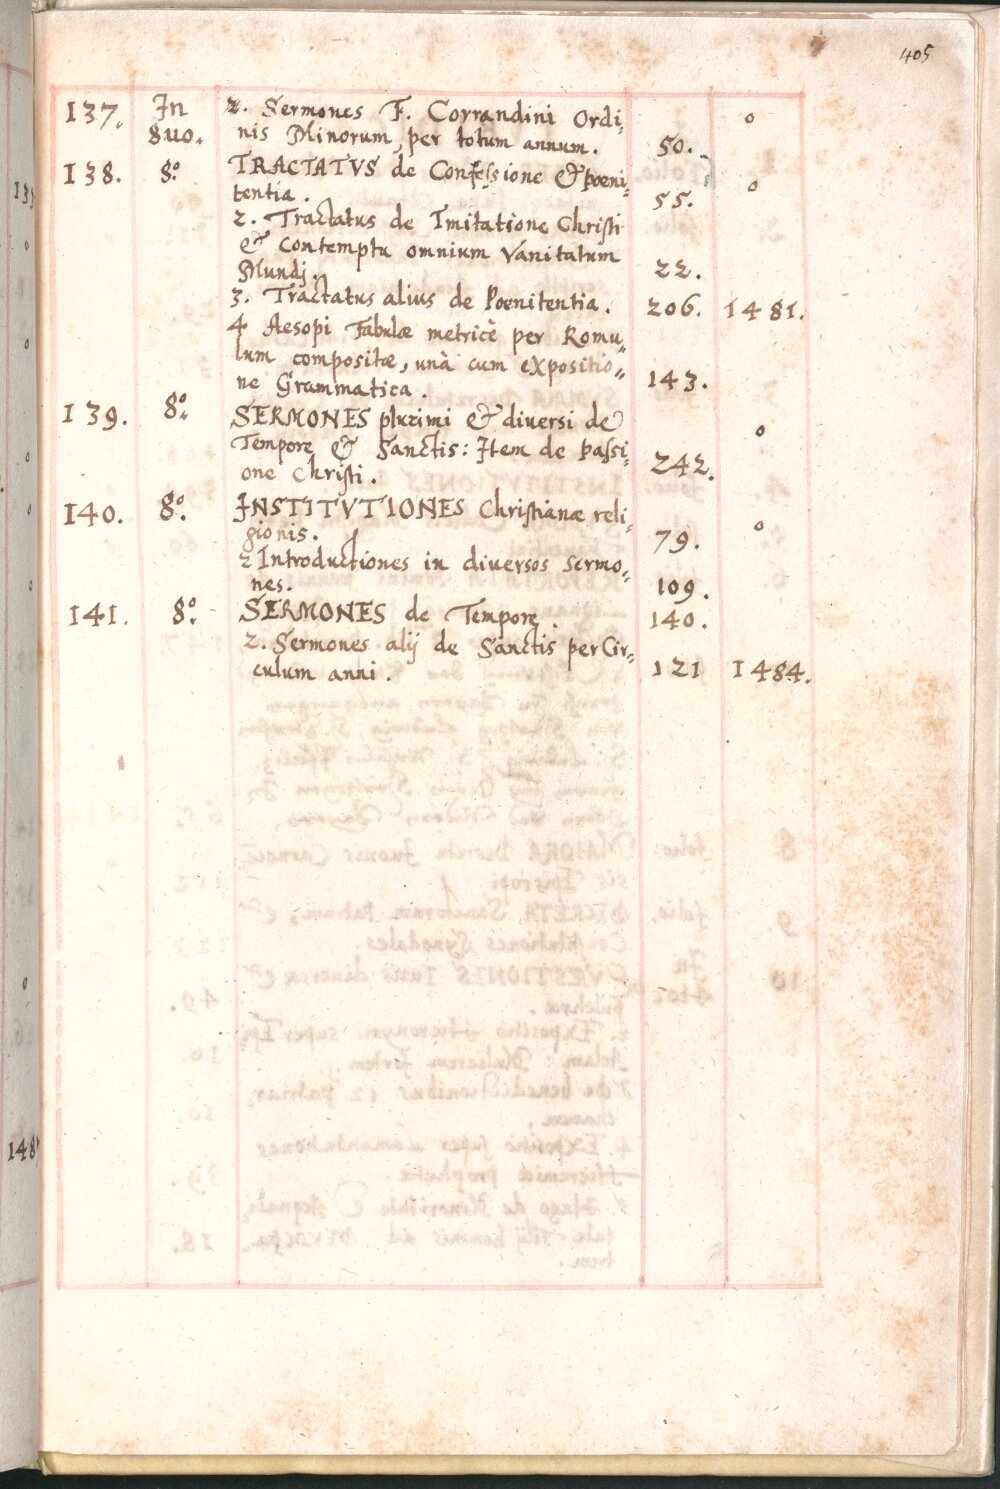 405
137. In 2. Sermones F. Corrandini Ordi, o
8uo. nis Minorum, per totum annum. 50.
138. 8o. TRACTATVS de Confessione & poeni, o
tentia. 55.
2. Tractatus de Imitatione Christi
& contemptu omnium vanitatum
Mundj. 22.
3. Tractatus alius de Poenitentia. 206. 1481.
4 Aesopi Fabulæ metricè per Romu„
lum compositæ, unà cum expositio„
ne Grammatica. 143.
139. 8o. SERMONES plurimi & diversi de o
Tempore & Sanctis: Item de passi„
one Christi. 242.
140. 8o. INSTITVTIONES Christianæ reli„ o
gionis. 79.
2 Introductiones in diversos sermo„
nes. 109.
141. 8o. SERMONES de Tempore. 140.
2. Sermones alij de Sanctis per Cir„
culum anni. 121 1484.